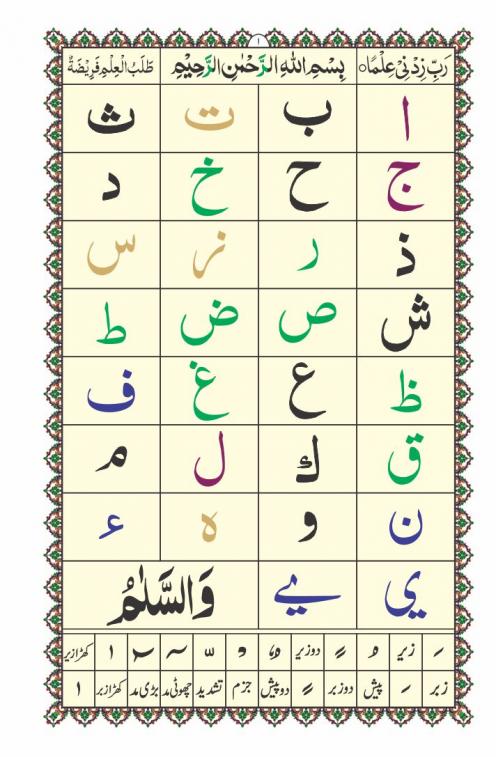 ١
رَبِّ زِدْنِیْ عِلْمًا○ بِسْمِ اللهِ الرَّحْمٰنِ الرَّحِیْمِ طَلَبُ الْعِلْمِ فَرِیْضَةٌ
ا ب ت ث
ج ح خ د
ذ ر ز س
ش ص ض ط
ظ ع غ ف
ق ك ل م
ن و ہ ء
ی ے وَالسَّلَامُ
زیر دوزیر کھڑازیر
زبر پیش دوزبر دوپیش جزم تشدید چھوٹی مد بڑی مد کھڑازبر